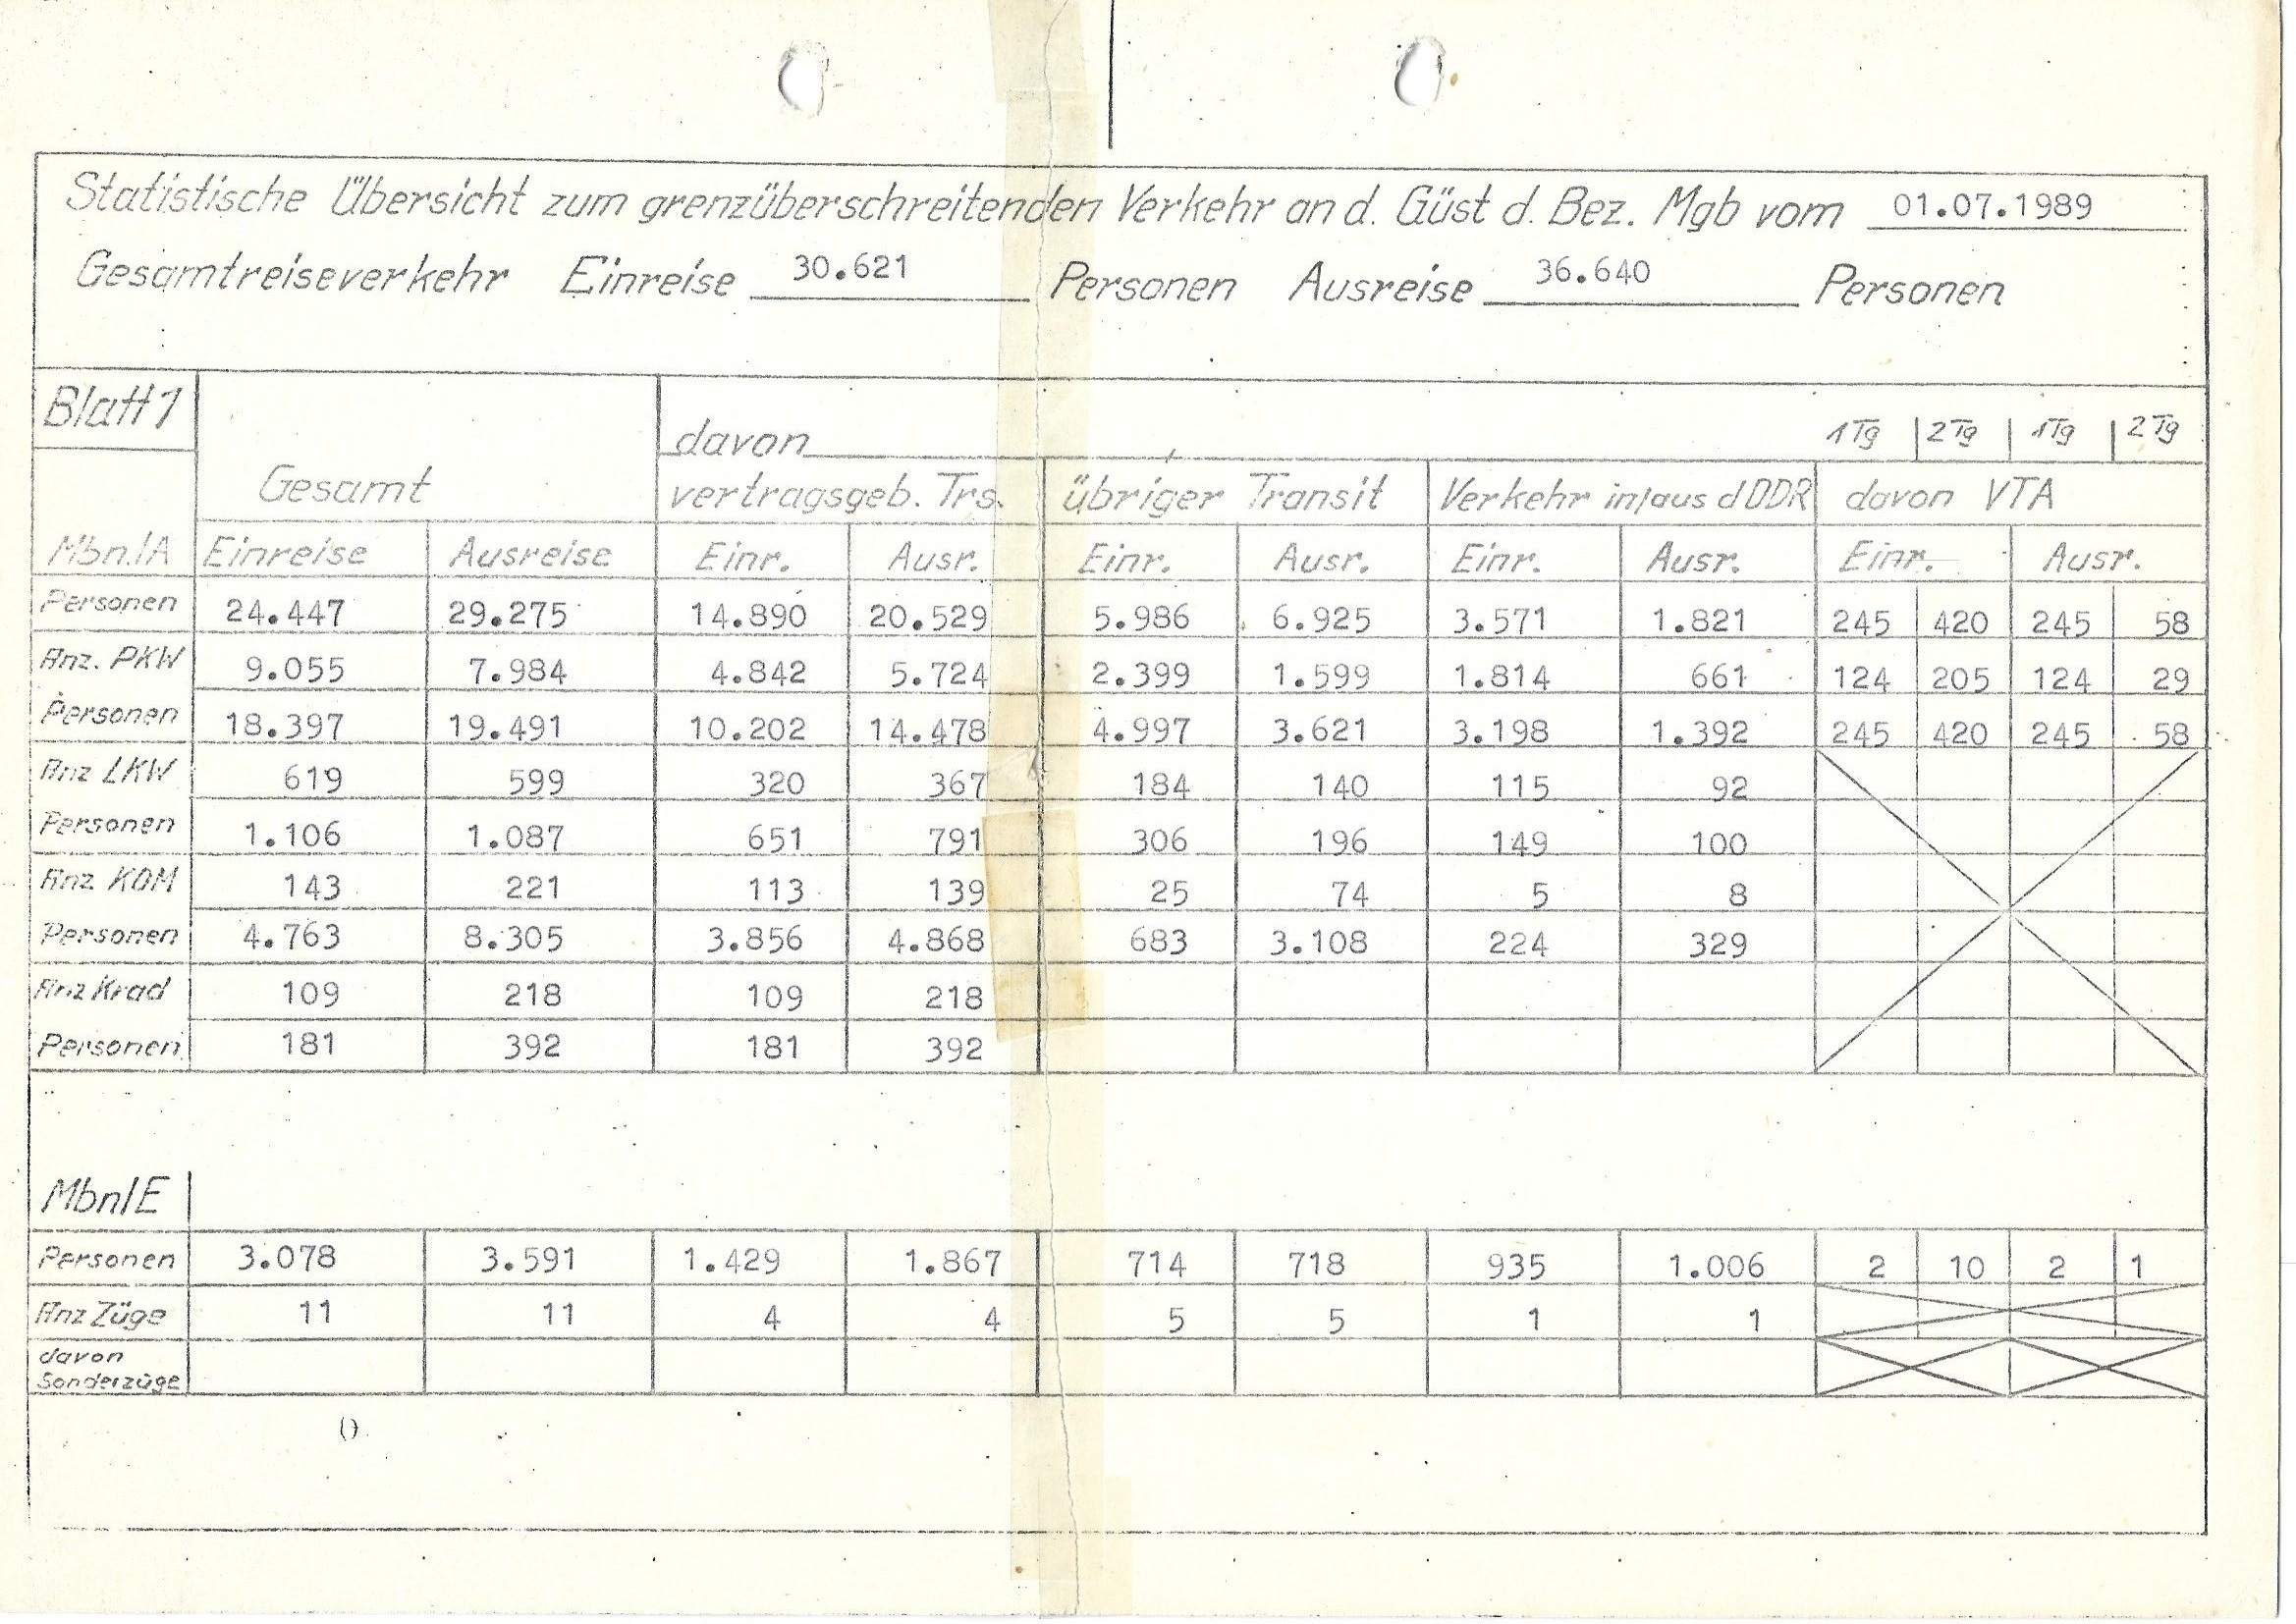 Statistische Übersicht zum grenzüberschreitenden Verkehr an d. Güst d. Bez. Mgb vom 01.07.1989
Gesamtreiseverkehr Einreise 30.621 Personen Ausreise 36.640 Personen
Blatt 1
davon 1 Tg 2 Tg 1 Tg 2 Tg
Gesamt vertragsgeb. Trs. übriger Transit Verkehr in/aus d DDR davon VTA
Mbn./A Einreise Ausreise Einr. Ausr. Einr. Ausr. Einr. Ausr. Einr. Ausr.
Personen 24.447 29.275 14.890 20.529 5.986 6.925 3.571 1.821 245 420 245 58
Anz. PKW 9.055 7.984 4.842 5.724 2.399 1.599 1.814 661 124 205 124 29
Personen 18.397 19.491 10.202 14.478 4.997 3.621 3.198 1.392 245 420 245 58
Anz LKW 619 599 320 367 184 140 115 92
Personen 1.106 1.087 651 791 306 196 149 100
Anz KOM 143 221 113 139 25 74 5 8
Personen 4.763 8.305 3.856 4.868 683 3.108 224 329
Anz Krad 109 218 109 218
Personen 181 392 181 392
Mbn/E
Personen 3.078 3.591 1.429 1.867 714 718 935 1.006 2 10 2 1
Anz Züge 11 11 4 4 5 5 1 1
davon
Sonderzüge